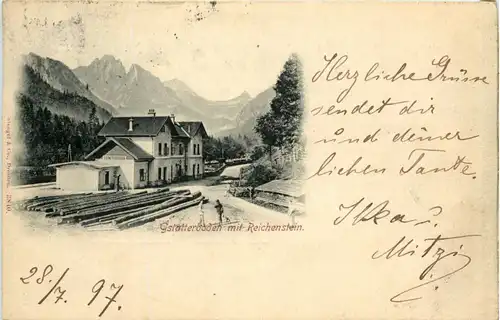 Herzliche Grüsse
sendet dir
und deiner
lichen Tante.
Ilka u.
Mitzi
Gstatterboden mit Reichenstein.
28/7. 97.